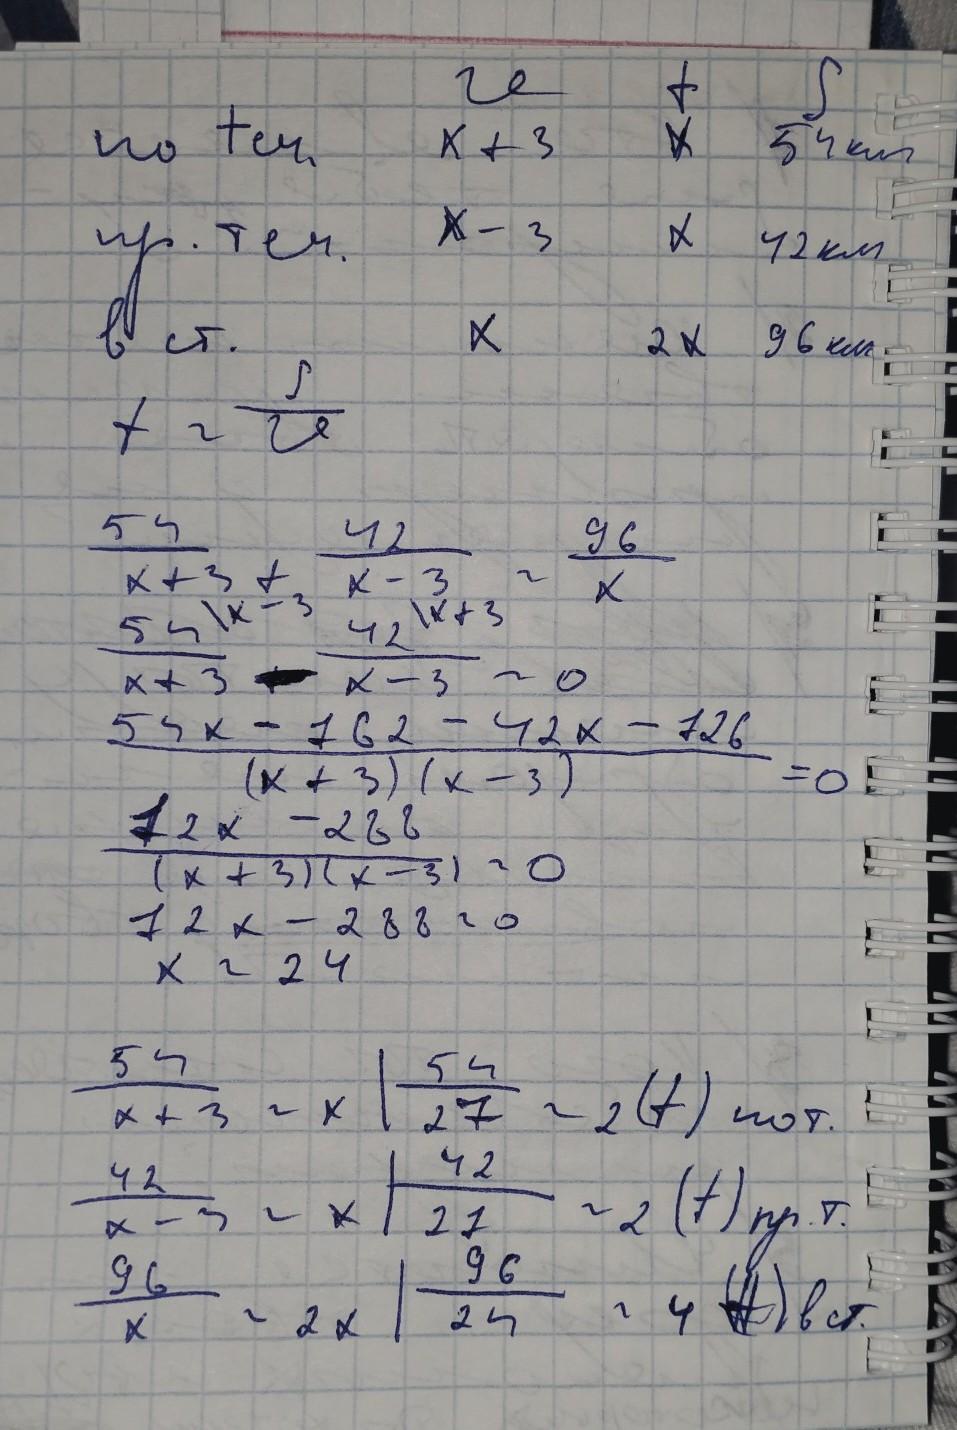 v t S
по теч. x + 3 x 54 км
пр. теч. x - 3 x 42 км
в ст. x 2x 96 км
t = S/v
54/(x + 3) + 42/(x - 3) = 96/x
54\x-3/(x + 3) - 42\x+3/(x - 3) = 0
(54x - 162 - 42x - 126)/((x + 3)(x - 3)) = 0
(12x - 288)/((x + 3)(x - 3)) = 0
12x - 288 = 0
x = 24
54/(x + 3) = x | 54/27 = 2 (t) по т.
42/(x - 3) = x | 42/21 = 2 (t) пр. т.
96/x = 2x | 96/24 = 4 (t) в ст.